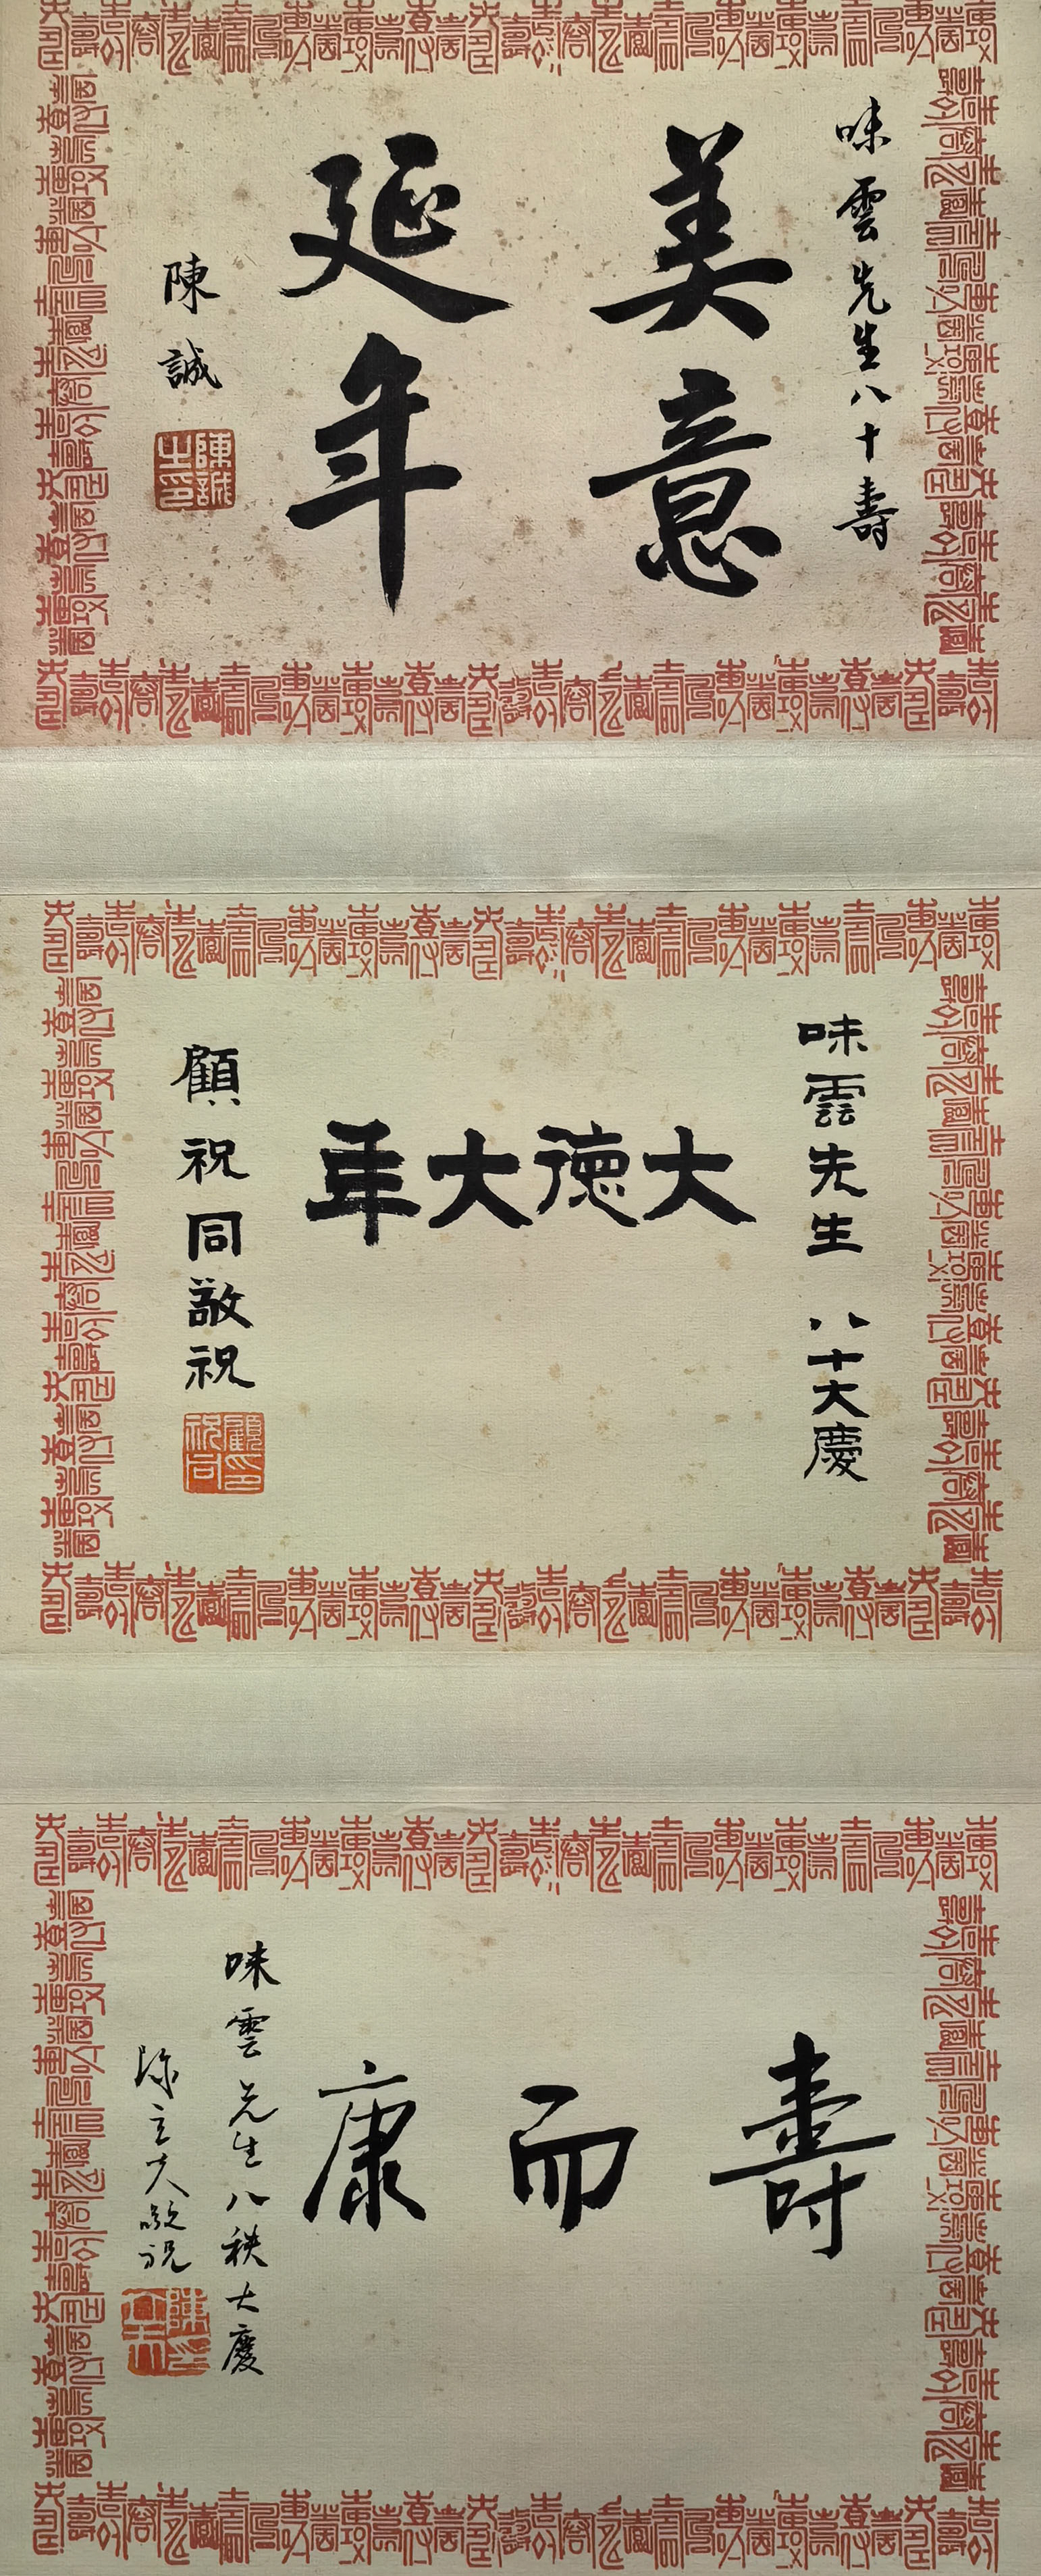 味雲先生八十壽
美意
延年
陳誠
陳誠之印
味雲先生 八十大慶
大德大年
顧祝同敬祝
顧印祝同
壽而康
味雲先生八秩大慶
陳立夫敬祝
陳立夫印